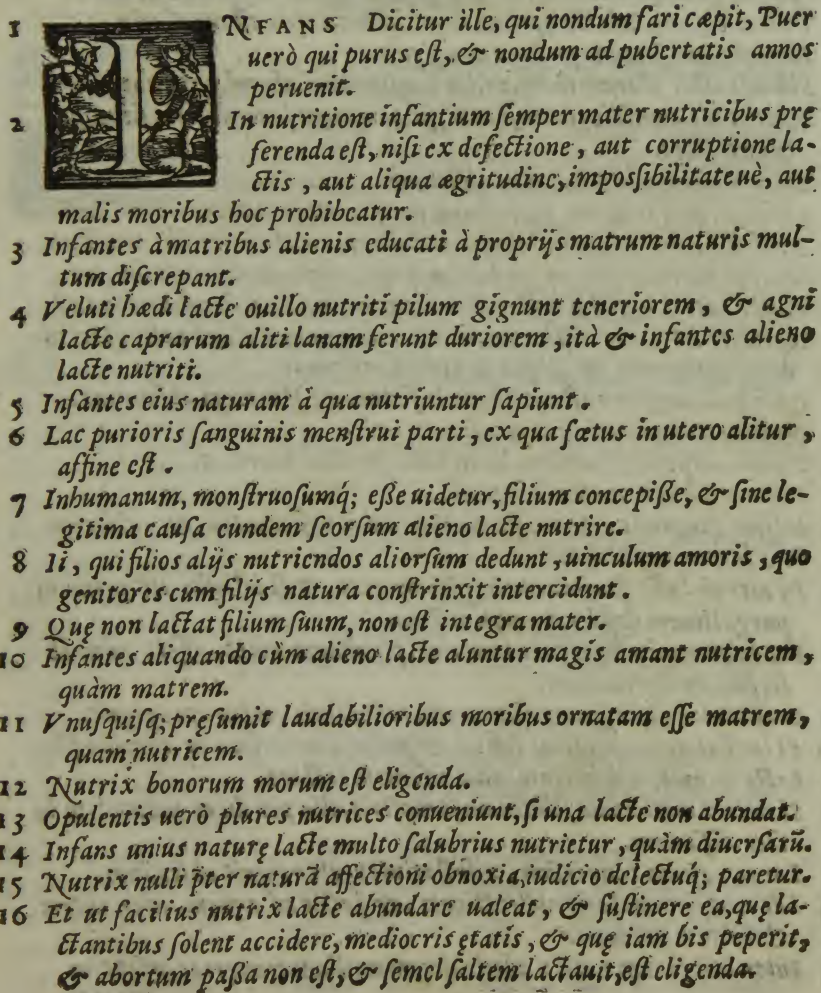 1 INFANS Dicitur ille, qui nondum fari cæpit, Puer
uerò qui purus eſt, & nondum ad pubertatis annos
peruenit.
2 In nutritione infantium ſemper mater nutricibus prę
ferenda eſt, niſi ex defectione, aut corruptione la-
ctis, aut aliqua ægritudine, imposſibilitate uè, aut
malis moribus hoc prohibeatur.
3 Infantes à matribus alienis educati à proprijs matrum naturis mul-
tum diſcrepant.
4 Veluti hædi lacte ouillo nutriti pilum gignunt teneriorem, & agni
lacte caprarum aliti lanam ferunt duriorem, ità & infantes alieno
lacte nutriti.
5 Infantes eius naturam à qua nutriuntur ſapiunt.
6 Lac purioris ſanguinis menſtrui parti, ex qua fœtus in utero alitur,
affine eſt.
7 Inhumanum, monſtruoſumq́; eße uidetur, filium concepiße, & ſine le-
gitima cauſa eundem ſeorſum alieno lacte nutrire.
8 Ii, qui filios alijs nutriendos aliorſum dedunt, uinculum amoris, quo
genitores cum filijs natura conſtrinxit intercidunt.
9 Quę non lactat filium ſuum, non eſt integra mater.
10 Infantes aliquando cùm alieno lacte aluntur magis amant nutricem,
quàm matrem.
11 Vnuſquiſq; pręſumit laudabilioribus moribus ornatam eſſe matrem,
quam nutricem.
12 Nutrix bonorum morum eſt eligenda.
13 Opulentis uerò plures nutrices conueniunt, ſi una lacte non abundat.
14 Infans unius naturę lacte multo ſalubrius nutrietur, quàm diuerſarū.
15 Nutrix nulli p̄ter naturā affectioni obnoxia, iudicio delectuq́; paretur.
16 Et ut facilius nutrix lacte abundare ualeat, & ſuſtinere ea, quę la-
ctantibus ſolent accidere, mediocris ętatis, & quę iam bis peperit,
& abortum paßa non eſt, & ſemel ſaltem lactauit, eſt eligenda.